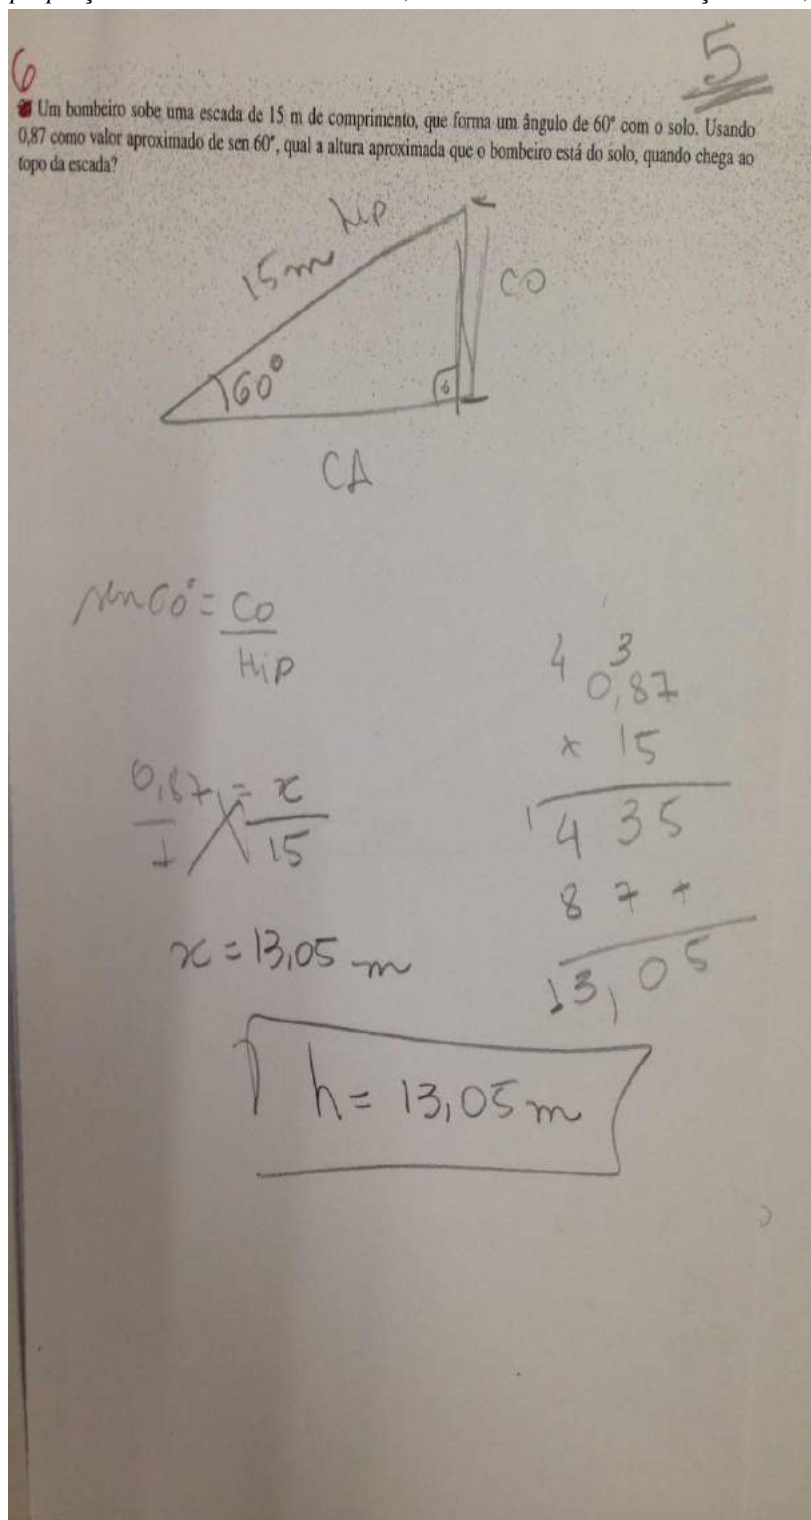 5
6
Um bombeiro sobe uma escada de 15 m de comprimento, que forma um ângulo de 60° com o solo. Usando
0,87 como valor aproximado de sen 60°, qual a altura aproximada que o bombeiro está do solo, quando chega ao
topo da escada?
hip
15m
CO
60°
CA
sen 60° = CO
Hip
4 3
0,87
x 15
1
4 35
8 7 +
13,05
0,87 = x
1 15
x = 13,05 m
h = 13,05 m